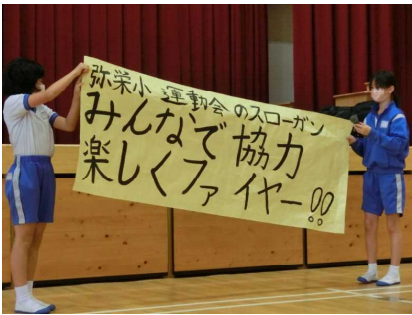 弥栄小 運動会のスローガン
みんなで協力
楽しくファイヤー!!